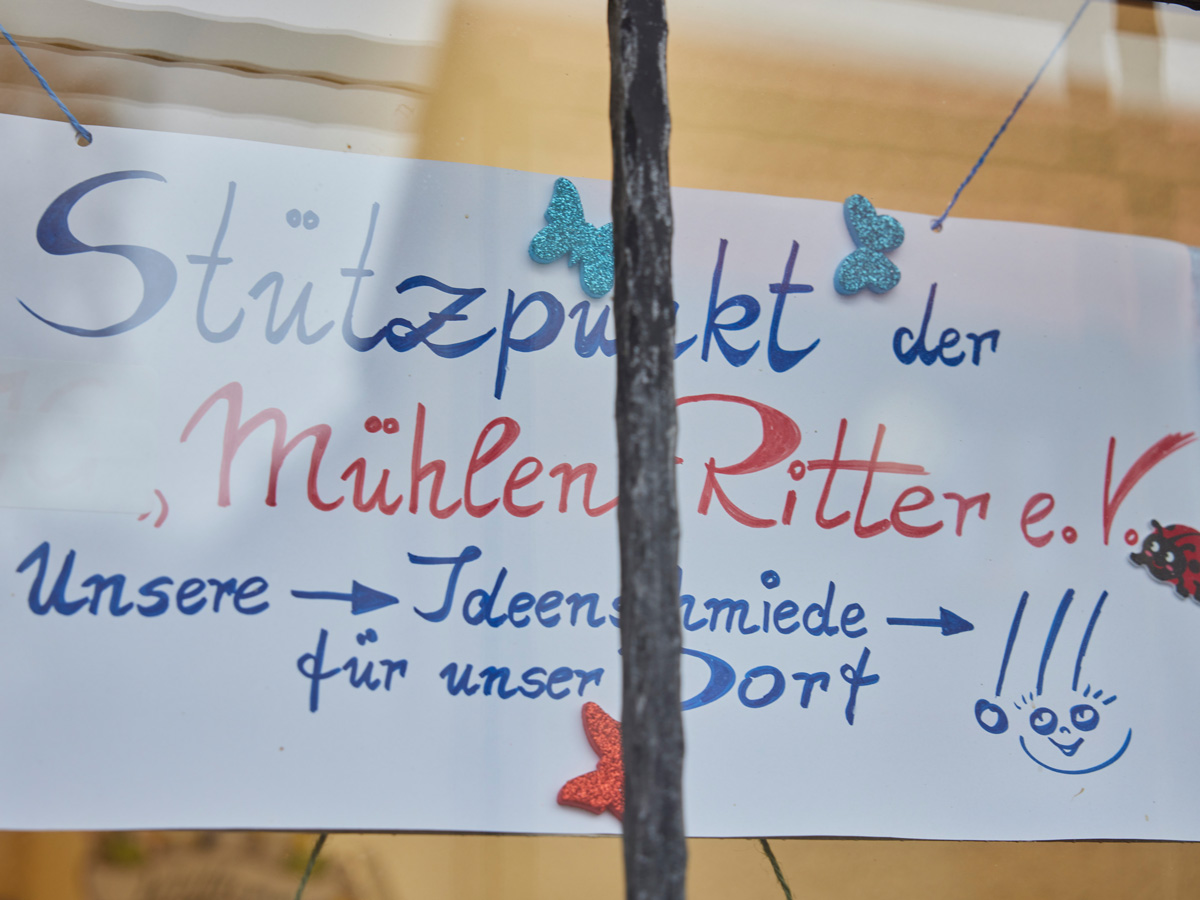 Stützpunkt der
„Mühlen Ritter e.V.
Unsere → Ideenschmiede →
für unser Dorf